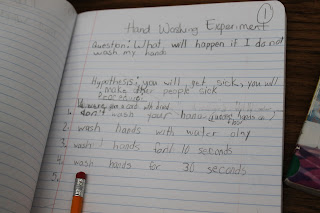 1
Hand Washing Experiment
Question: What will happen if I do not
wash my hands
Hypothesis: you will get sick, you will
make other people sick
1. don't wash your hand
2. wash hands with water olny
3. wash hands for 10 seconds
4. wash hands for 30 seconds
5.